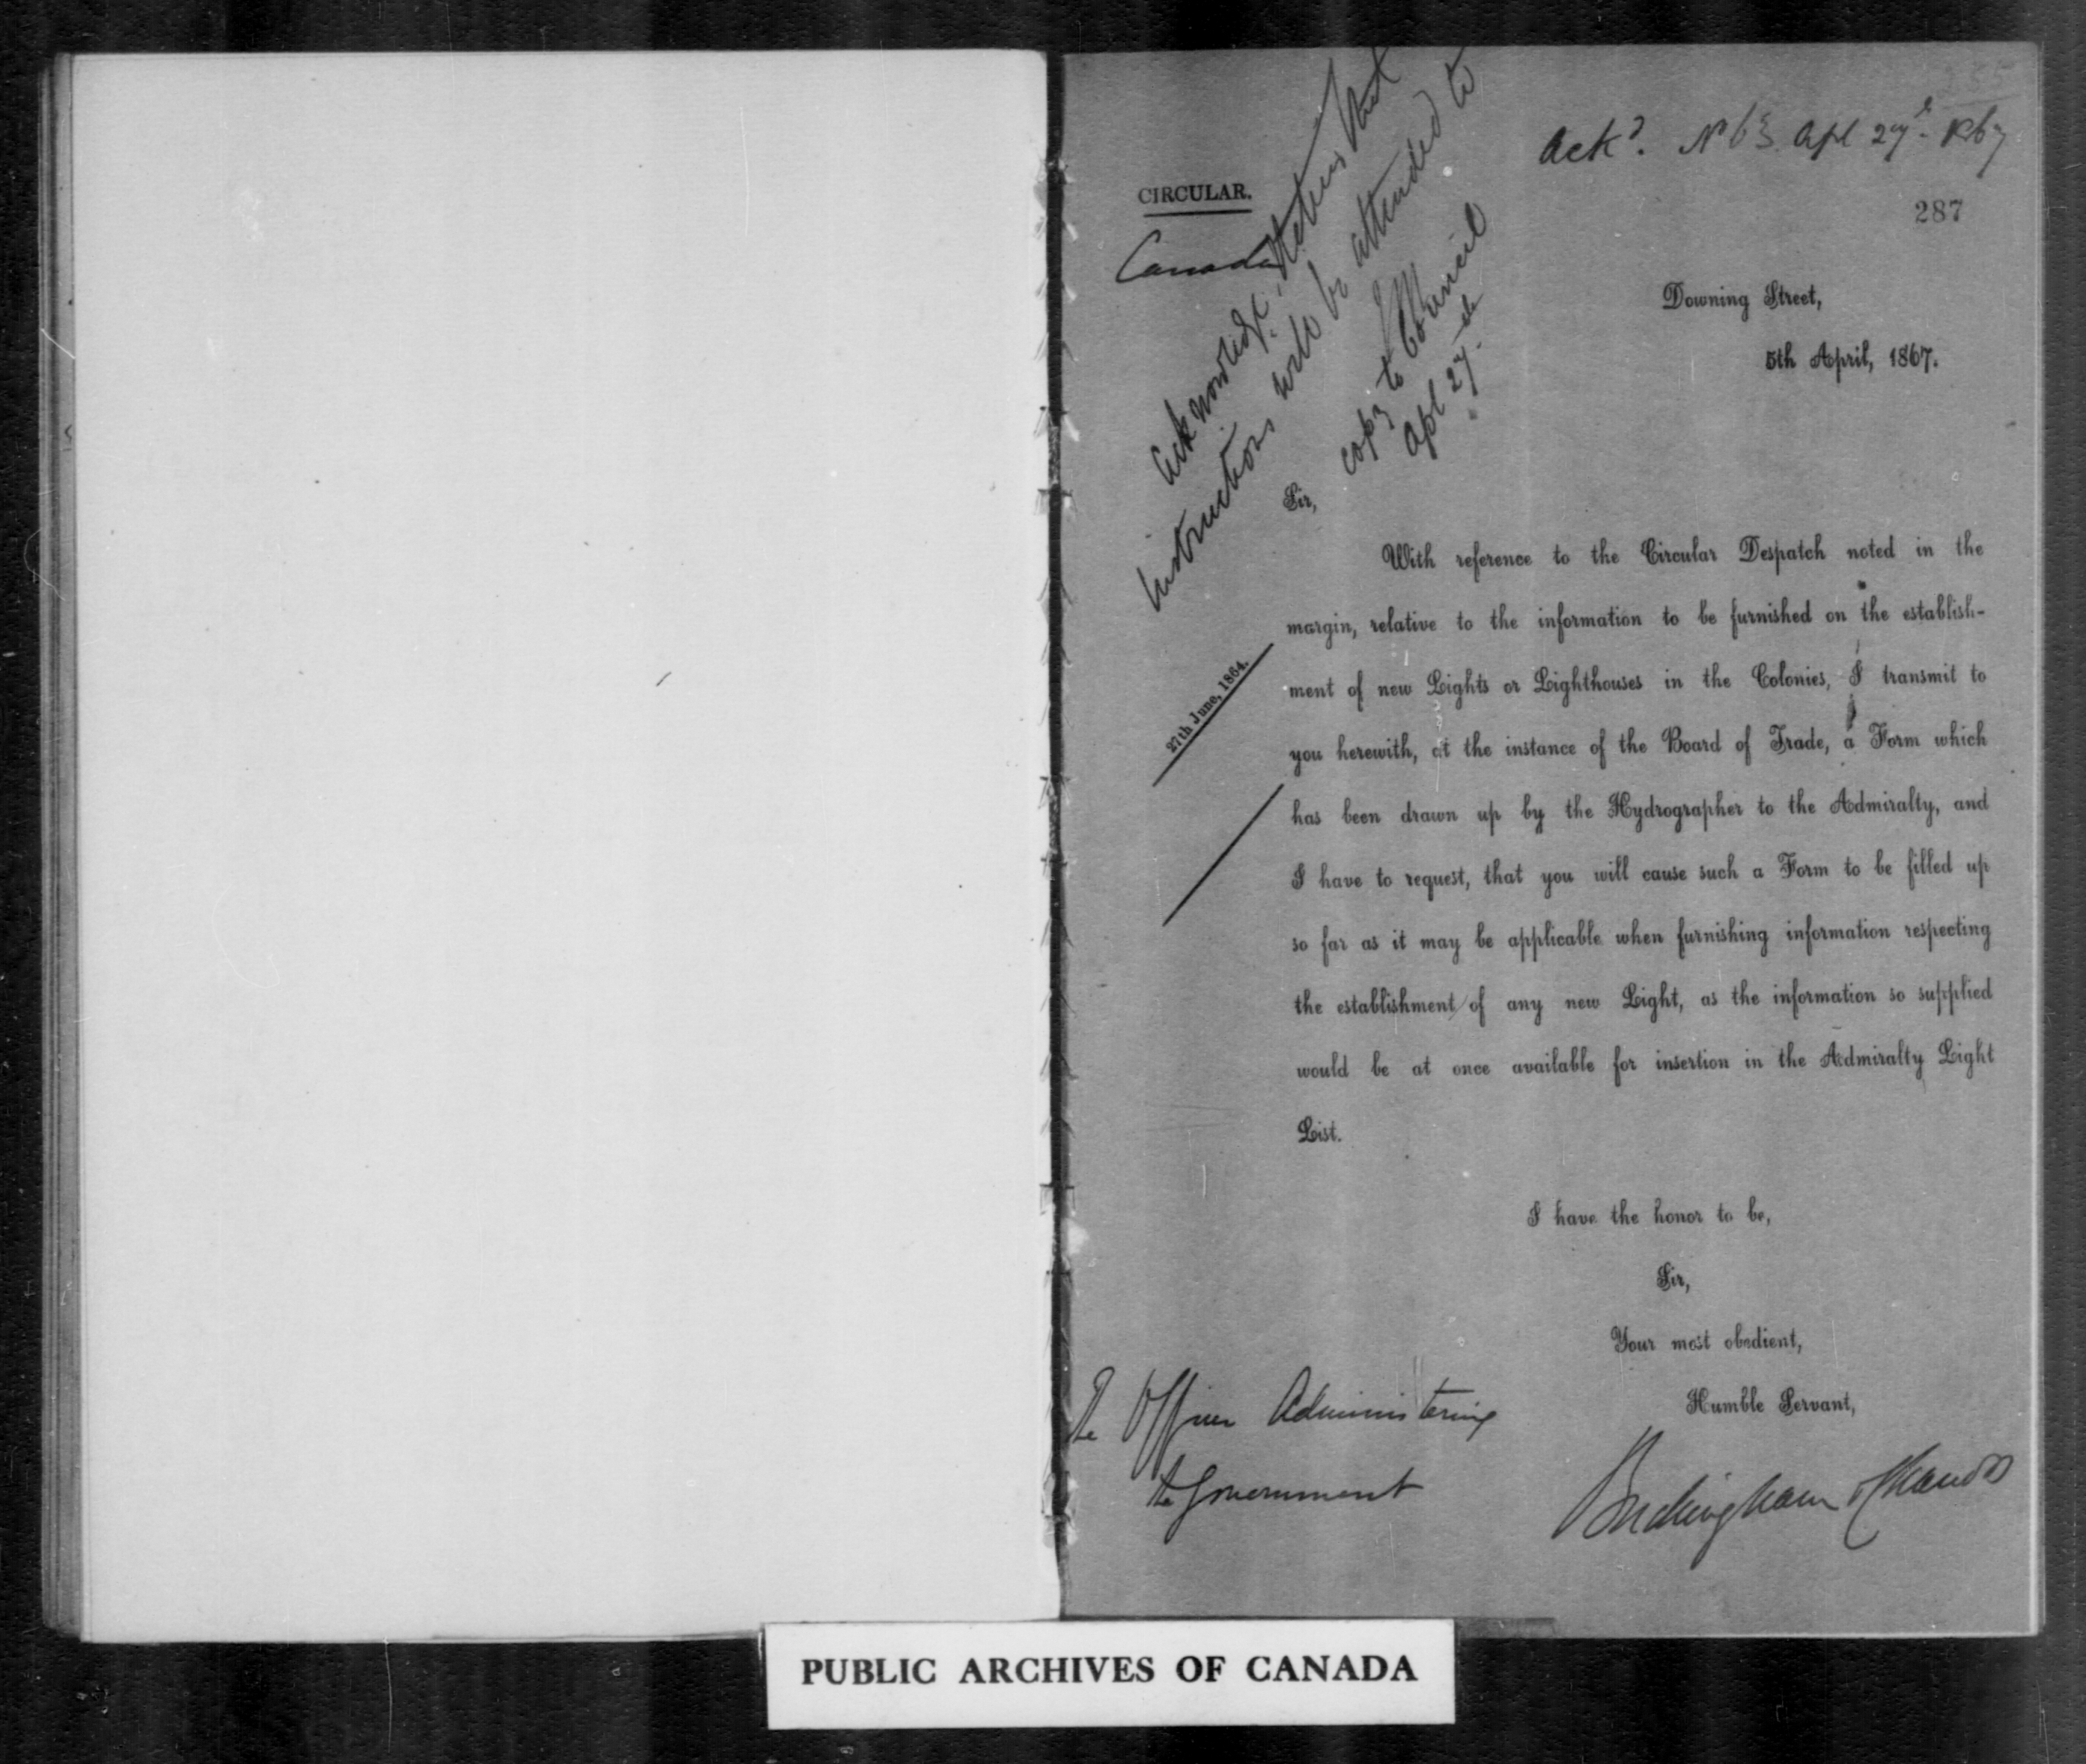 Ackd. No 63 Apl 27th 1867
CIRCULAR.
287
Canada
Acknowledge. State that
instructions will be attended to
copy to Council
Apl 27th
Downing Street,
5th April, 1867.
Sir,
With reference to the Circular Despatch noted in the
margin, relative to the information to be furnished on the establish-
27th June, 1864.
ment of new Lights or Lighthouses in the Colonies, I transmit to
you herewith, at the instance of the Board of Trade, a Form which
has been drawn up by the Hydrographer to the Admiralty, and
I have to request, that you will cause such a Form to be filled up
so far as it may be applicable when furnishing information respecting
the establishment of any new Light, as the information so supplied
would be at once available for insertion in the Admiralty Light
List.
I have the honor to be,
Sir,
Your most obedient,
Humble Servant,
The Officer Administering
the Government
Buckingham & Chandos
PUBLIC ARCHIVES OF CANADA